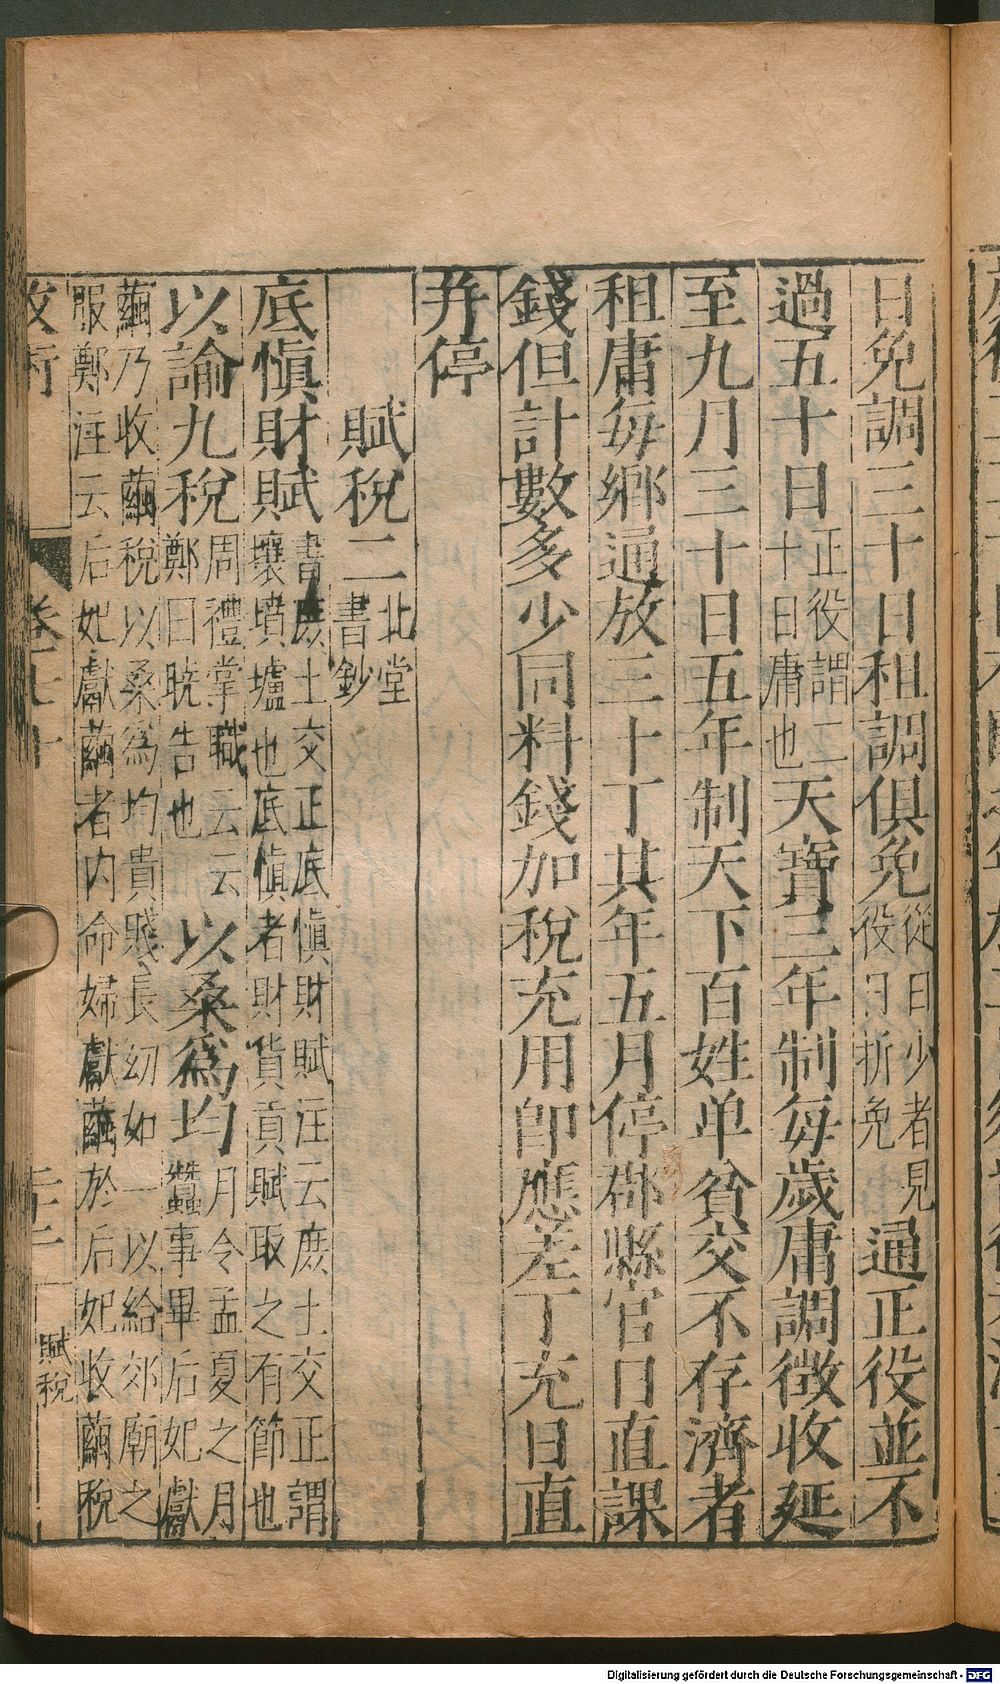 日免調三十日租調俱免從日少者見役日折免通正役並不
過五十日正役謂二十日庸也天寶三年制每歲庸調徵收延
至九月三十日五年制天下百姓单貧交不存濟者
租庸每鄉通放三十丁其年五月停郡縣官日直課
錢但計數多少同料錢加稅充用卽應差丁充日直
并停
賦稅二北堂書鈔
底慎財賦書庶土交正底慎財賦注云庶土交正謂壤墳壚也底慎者財貨貢賦取之有節也
以諭九稅周禮掌職云云鄭曰晓告也以桑為均月令孟夏之月蠶事畢后妃獻
繭乃收繭稅以桑為均貴賤長幼如一以給郊廟之
服鄭注云后妃獻繭者內命婦獻繭於后妃收繭稅
卷七十
賦稅
Digitalisierung gefördert durch die Deutsche Forschungsgemeinschaft - DFG